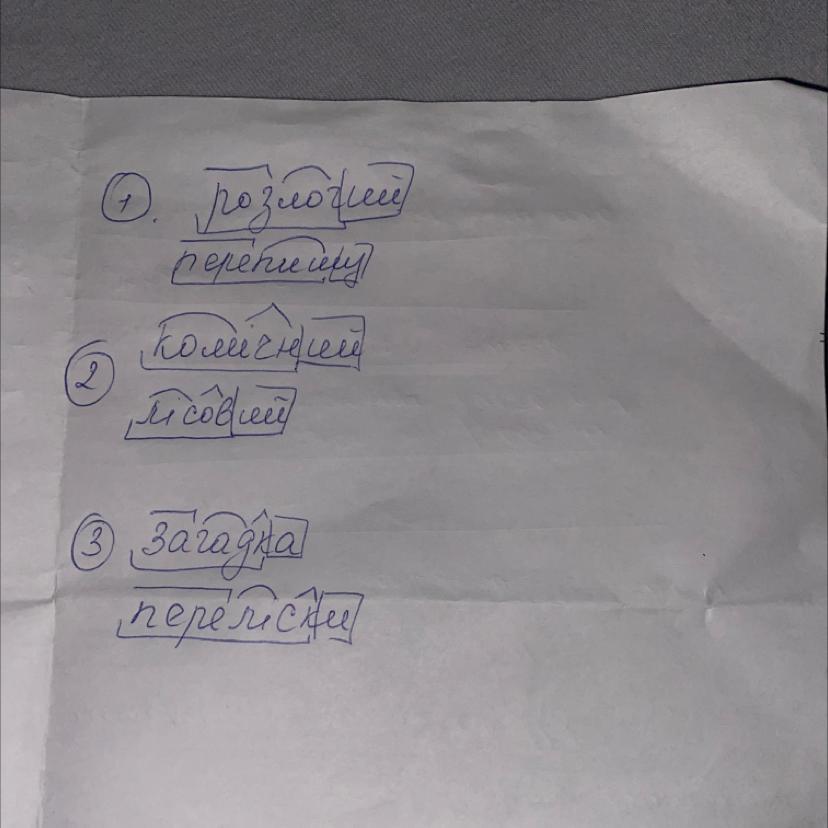 1. розлогий
перепишу
2 комічний
лісовий
3 загадка
переліски